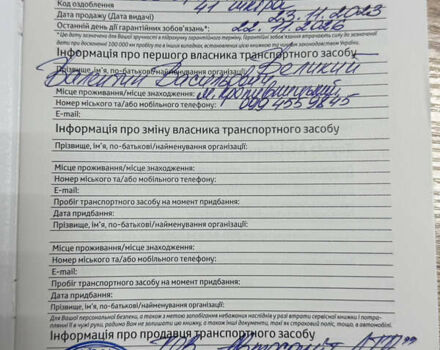 Код оздоблення 41 шкіра
Дата продажу (Дата видачі) 23.11.2023
Останній день дії гарантійних зобов'язань*: 22.11.2026
*Цю дату зазначено для Вашої зручності з підрахунку гарантійного терміну. Гарантійні зобов'язання втрачають силу до зазначеної
дати при досягненні 100 000 км пробігу та в інших випадках, встановлених цією книжкою та чинним законодавством України.
Інформація про першого власника транспортного засобу
Прізвище, ім'я, по-батькові/найменування організації: Великий
Валентин Васильович
Місце проживання/місце знаходження: м. Кропивницький
Номер міського та/або мобільного телефону: 099 455 9845
E-mail:
Інформація про зміну власника транспортного засобу
Прізвище, ім'я, по-батькові/найменування організації:
Місце проживання/місце знаходження:
Номер міського та/або мобільного телефону:
E-mail:
Пробіг транспортного засобу на момент придбання:
Дата придбання:
Прізвище, ім'я, по-батькові/найменування організації:
Місце проживання/місце знаходження:
Номер міського та/або мобільного телефону:
E-mail:
Пробіг транспортного засобу на момент придбання:
Дата придбання:
Прізвище, ім'я, по-батькові/найменування організації:
Для Вашої персональної безпеки, а також з метою запобігання небажаних наслідків у разі втрати сервісної книжки та потрап-
ляння її в чужі руки, радимо Вам не залишати цю книжку, а також інші документи, такі як страховий поліс, тощо, в автомобілі.
Інформація про продавця транспортного засобу